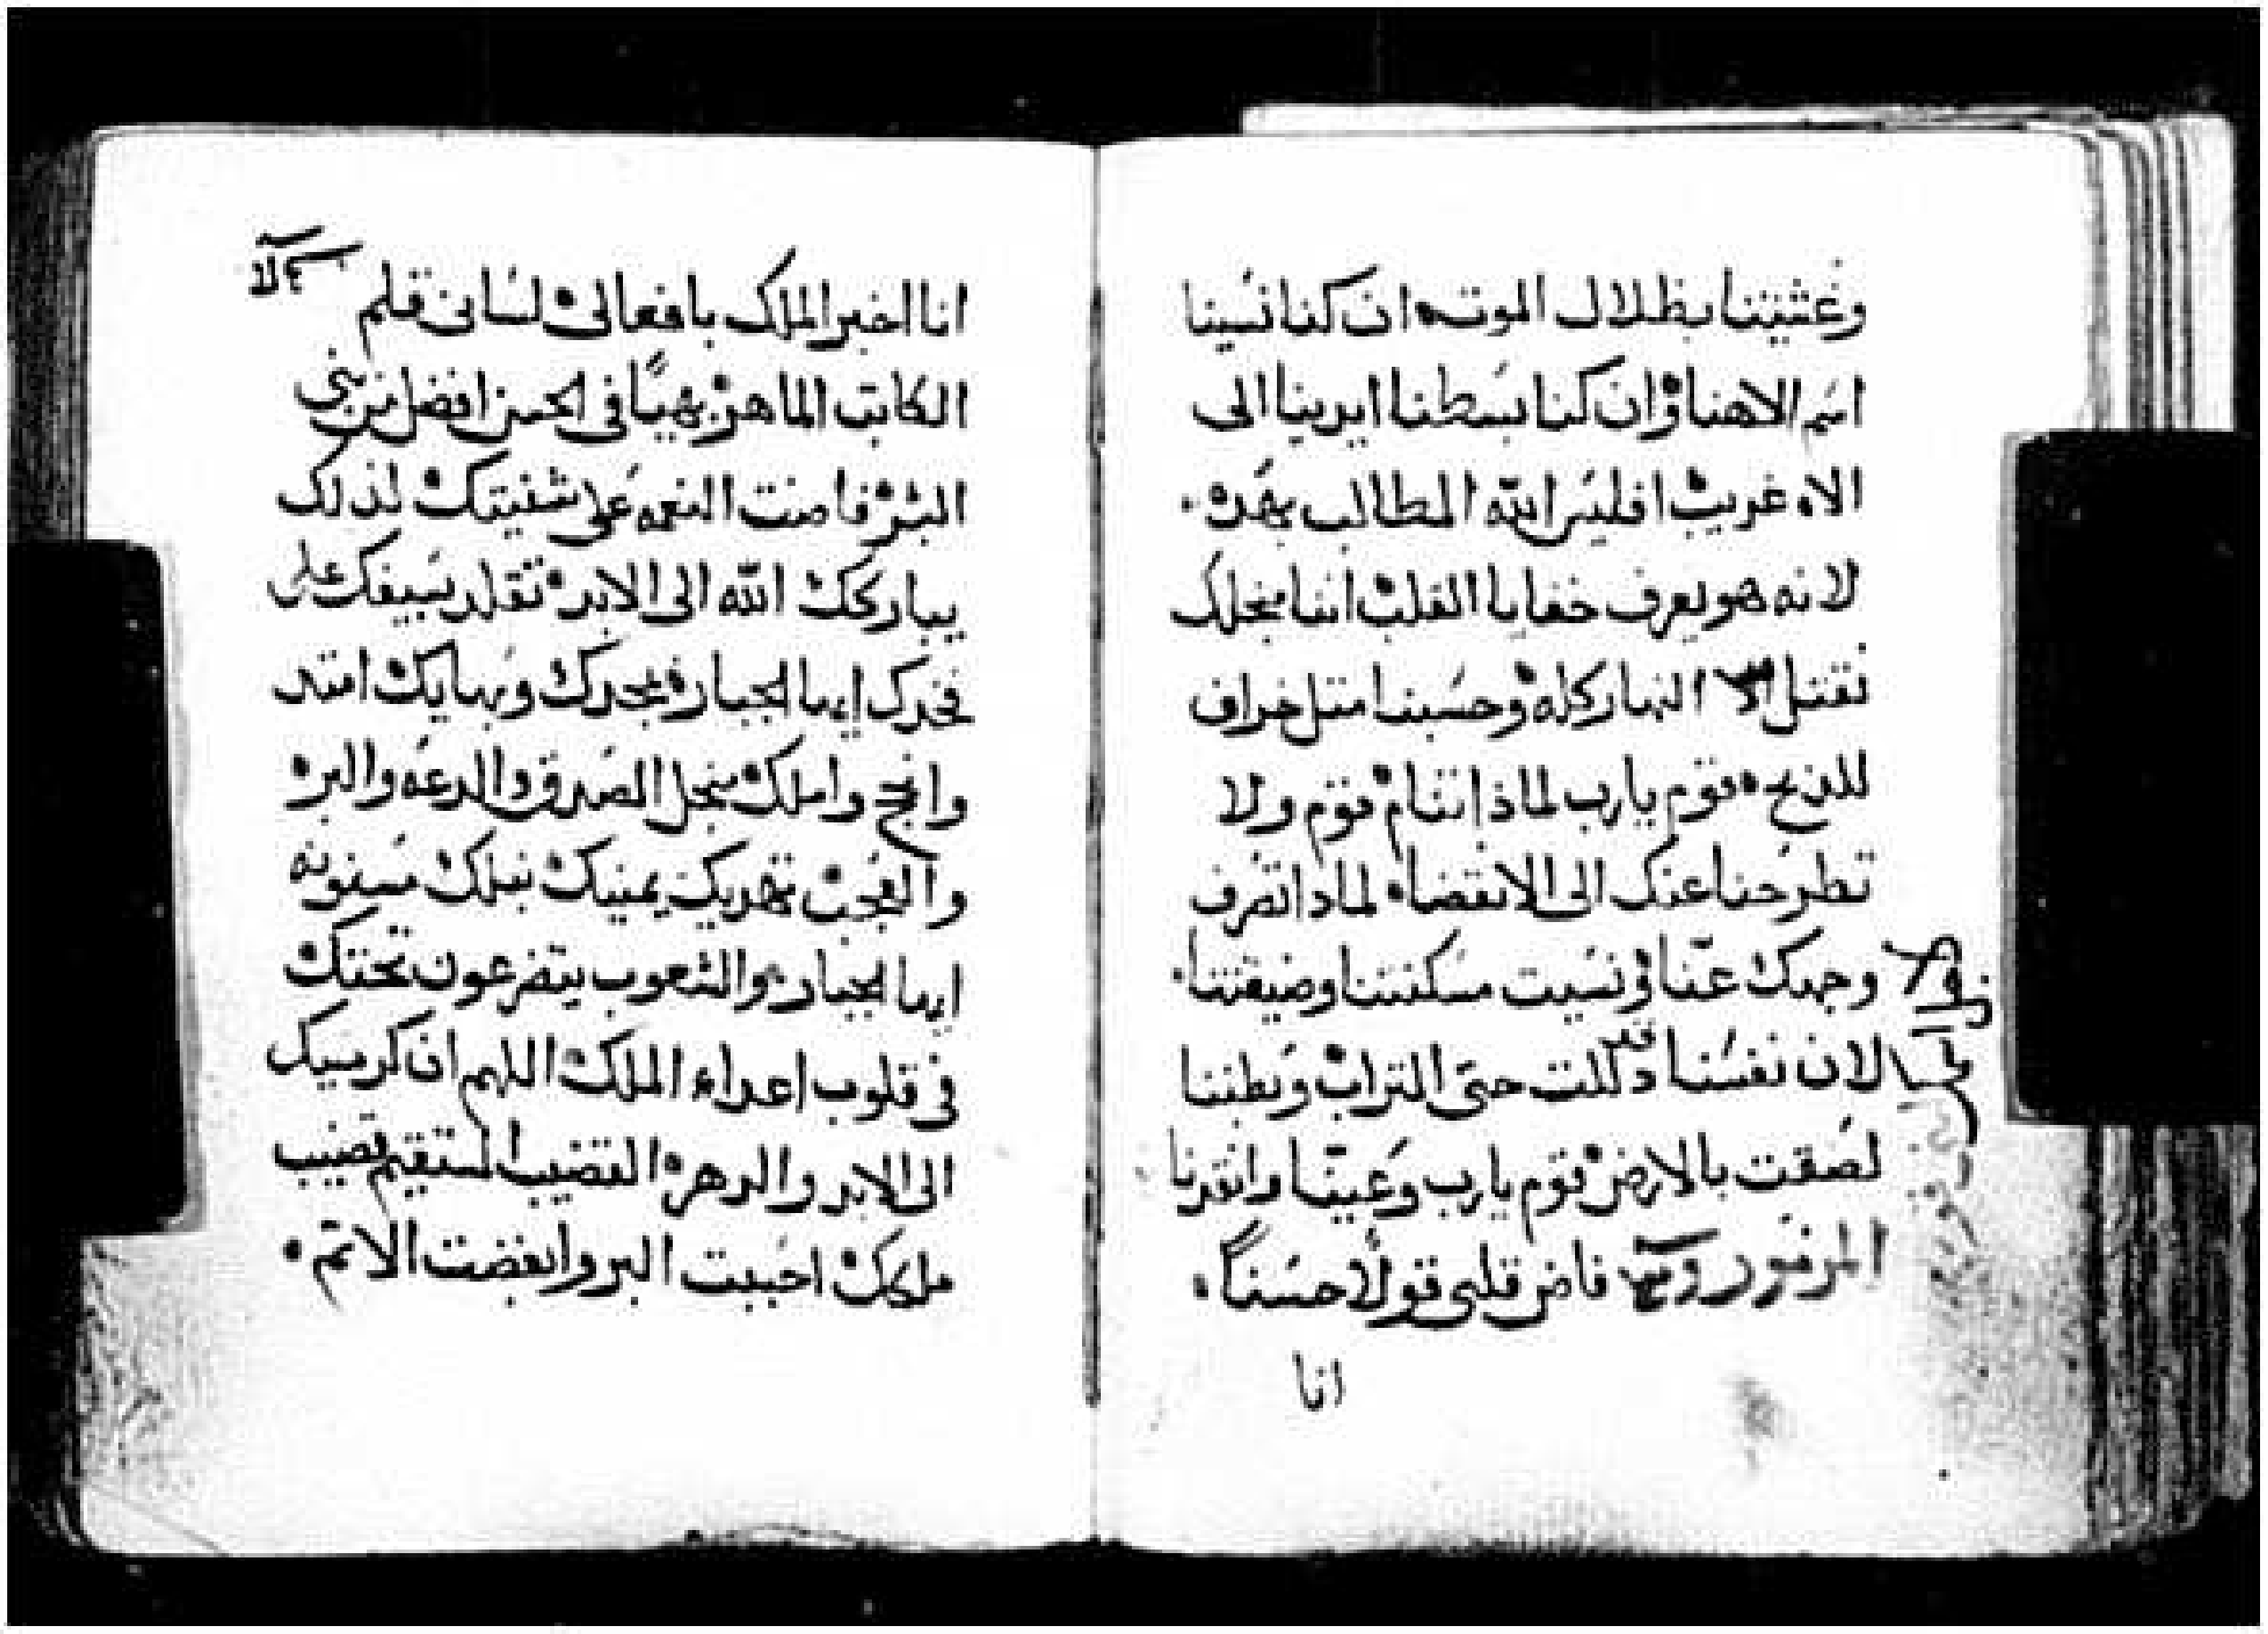 وغشيتنا بظلال الموت ان كنا نسينا
اسم الاهنا وان كنا بسطنا ايدينا الى
الاه غريب افليس الله المطالب بهده
لانه هو يعرف خفايا القلب اننا منجلك
نقتل النهار كله وحسبنا متل خراف
للدبح قوم يارب لماذا تنام قوم ولا
تطرحنا عنك الى الانقضاء لماذا تصرف
وجهك عنّا ونسيت مسكنتنا وضيقتنا
لان نفسنا قد دللت حتى التراب وبطننا
لصقت بالارض قوم يارب وعينّا وانقدنا
المزمور فاض قلبى قولًا حسنًا
انا
انا اخبر الملك بافعالى لسانى قلم
الكاتب الماهر بهيًا فى الحسن افضل من بنى
البشر فاضت النعمه على شفتيك لذلك
يباركك الله الى الابد تقلد بسيفك على
فخدك ايها الجبار بمجدك وبهايك امتد
وانجح واملك منجل الصدق والدعه والبر
والعجب تهديك يمينك نبلك مسنونه
ايها الجبار والشعوب يتضرعون تحتك
فى قلوب اعداء الملك اللهم ان كرسيك
الى الابد والدهر القضيب المستقيم قضيب
ملكك احببت البر وابغضت الاتم